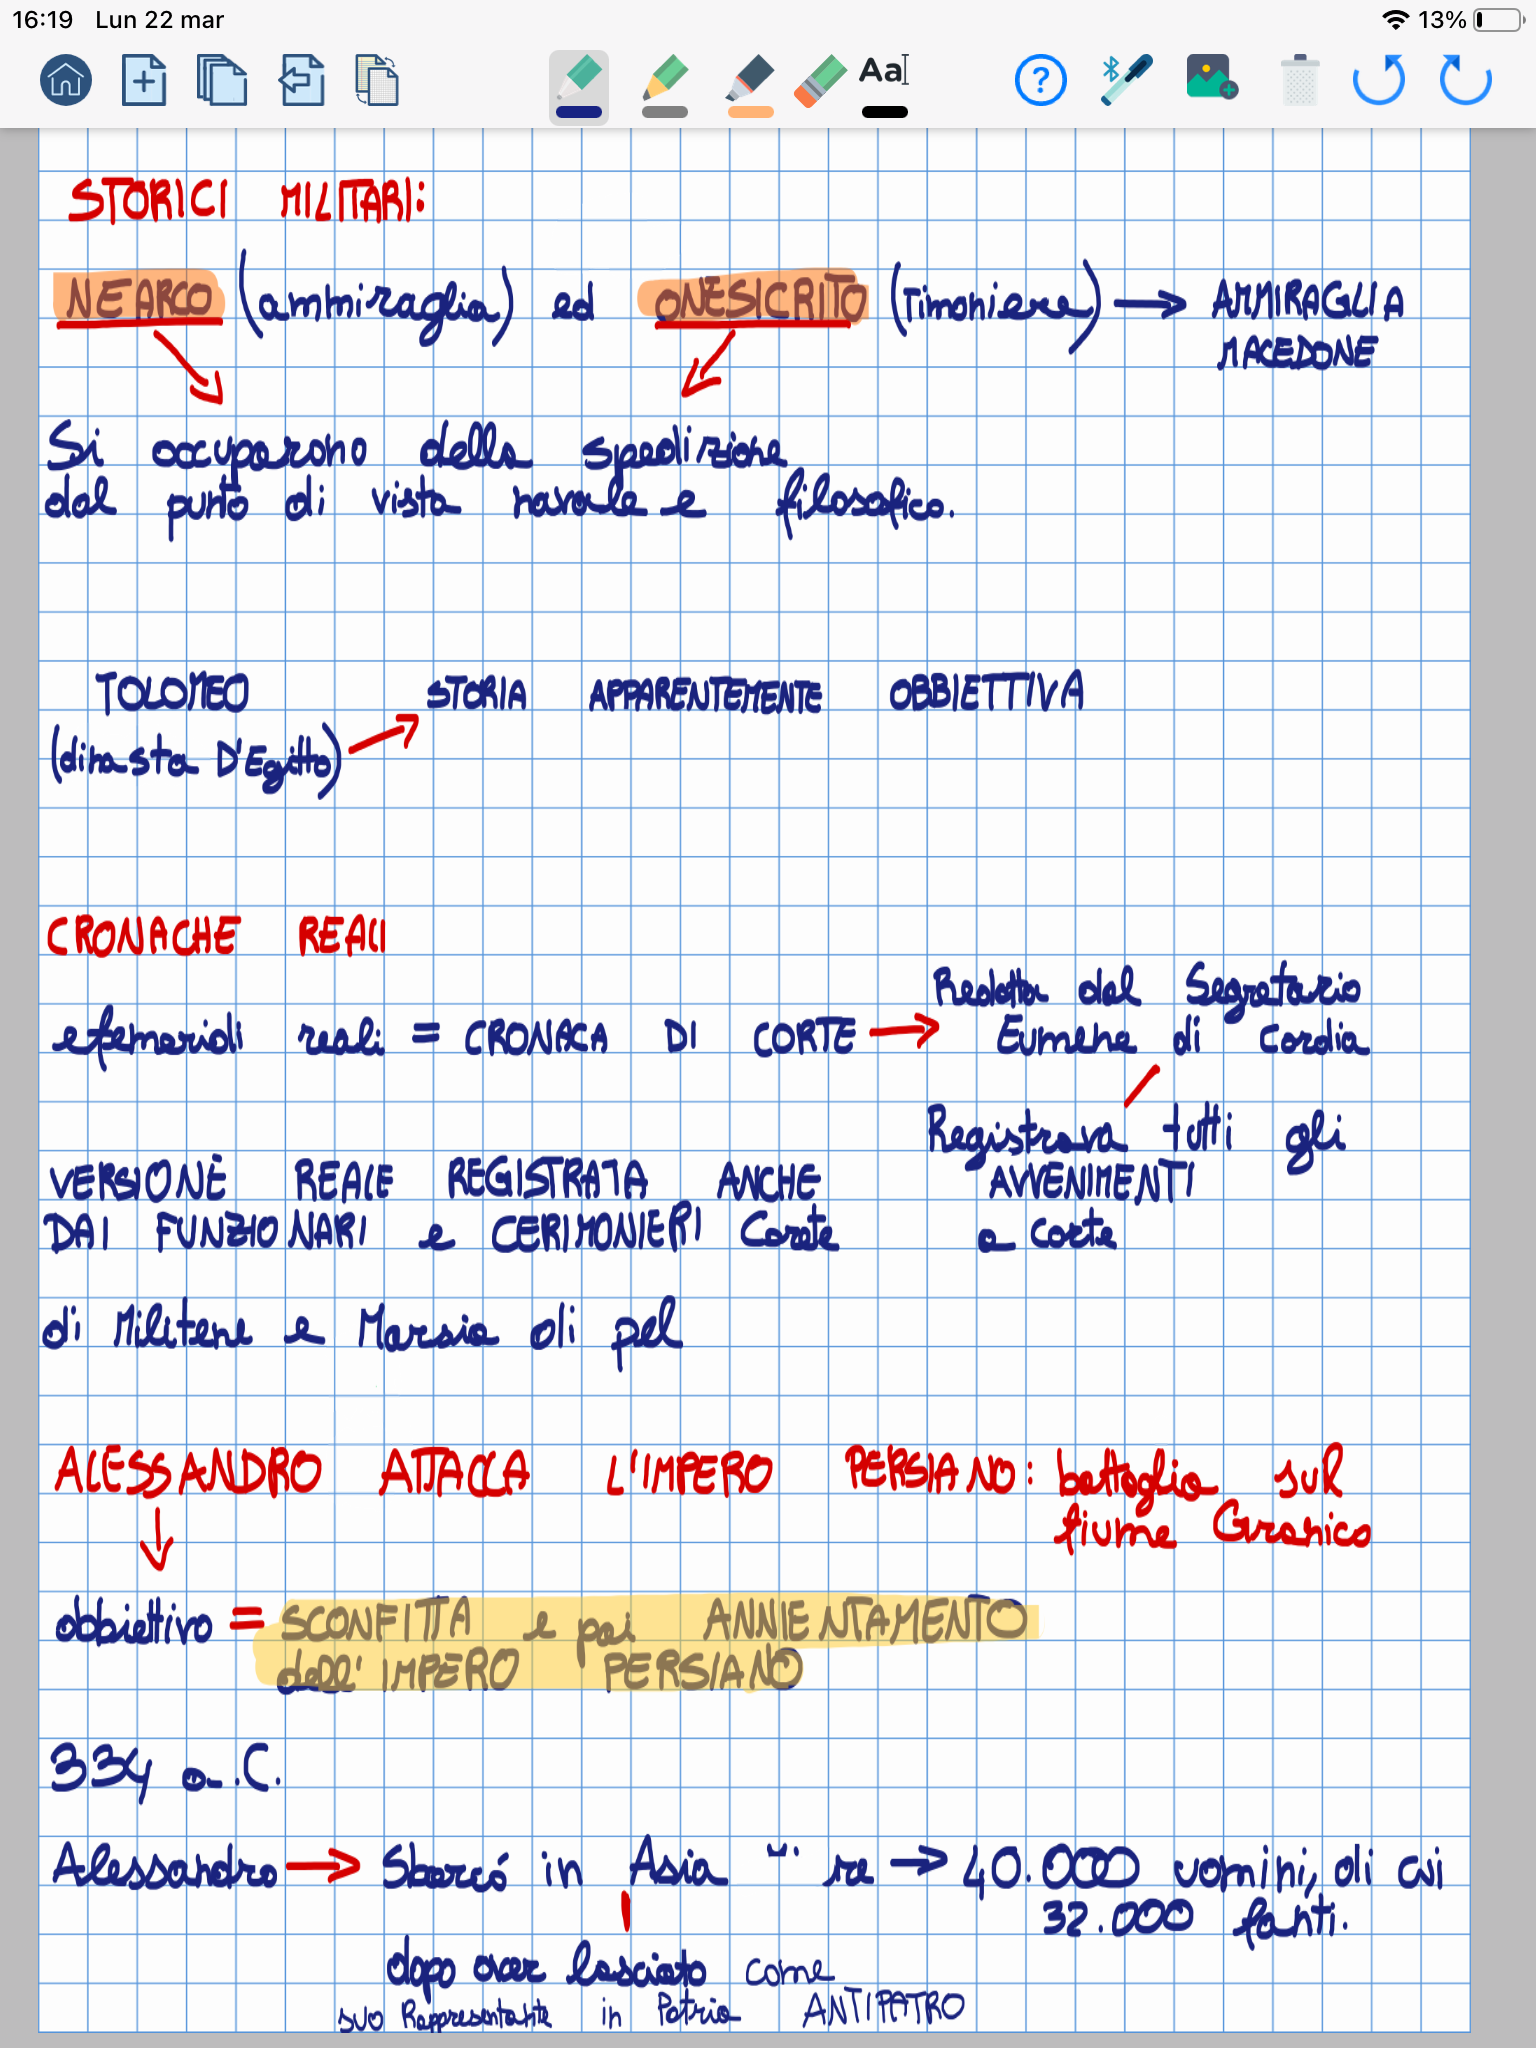 16:19 Lun 22 mar 13%
Aa
STORICI MILITARI:
NEARCO (ammiraglia) ed ONESICRITO (Timoniere) → AMMIRAGLIA
MACEDONE
Si occuparono della spedizione
dal punto di vista navale e filosofico.
TOLOMEO STORIA APPARENTEMENTE OBBIETTIVA
(dinasta D'Egitto)
CRONACHE REALI
Redatta dal Segretario
efemeridi reali = CRONACA DI CORTE → Eumene di Cardia
Registrava tutti gli
VERSIONE REALE REGISTRATA ANCHE AVVENIMENTI
DAI FUNZIONARI e CERIMONIERI Carete a corte
di Militene e Marsia di pel
ALESSANDRO ATTACCA L'IMPERO PERSIANO: battaglia sul
fiume Granico
obbiettivo = SCONFITTA e poi ANNIENTAMENTO
dell'IMPERO PERSIANO
334 a.C.
Alessandro → Sbarcó in Asia re → 40.000 uomini, di cui
32.000 fanti.
dopo aver lasciato come
suo Rappresentante in Patria ANTIPATRO